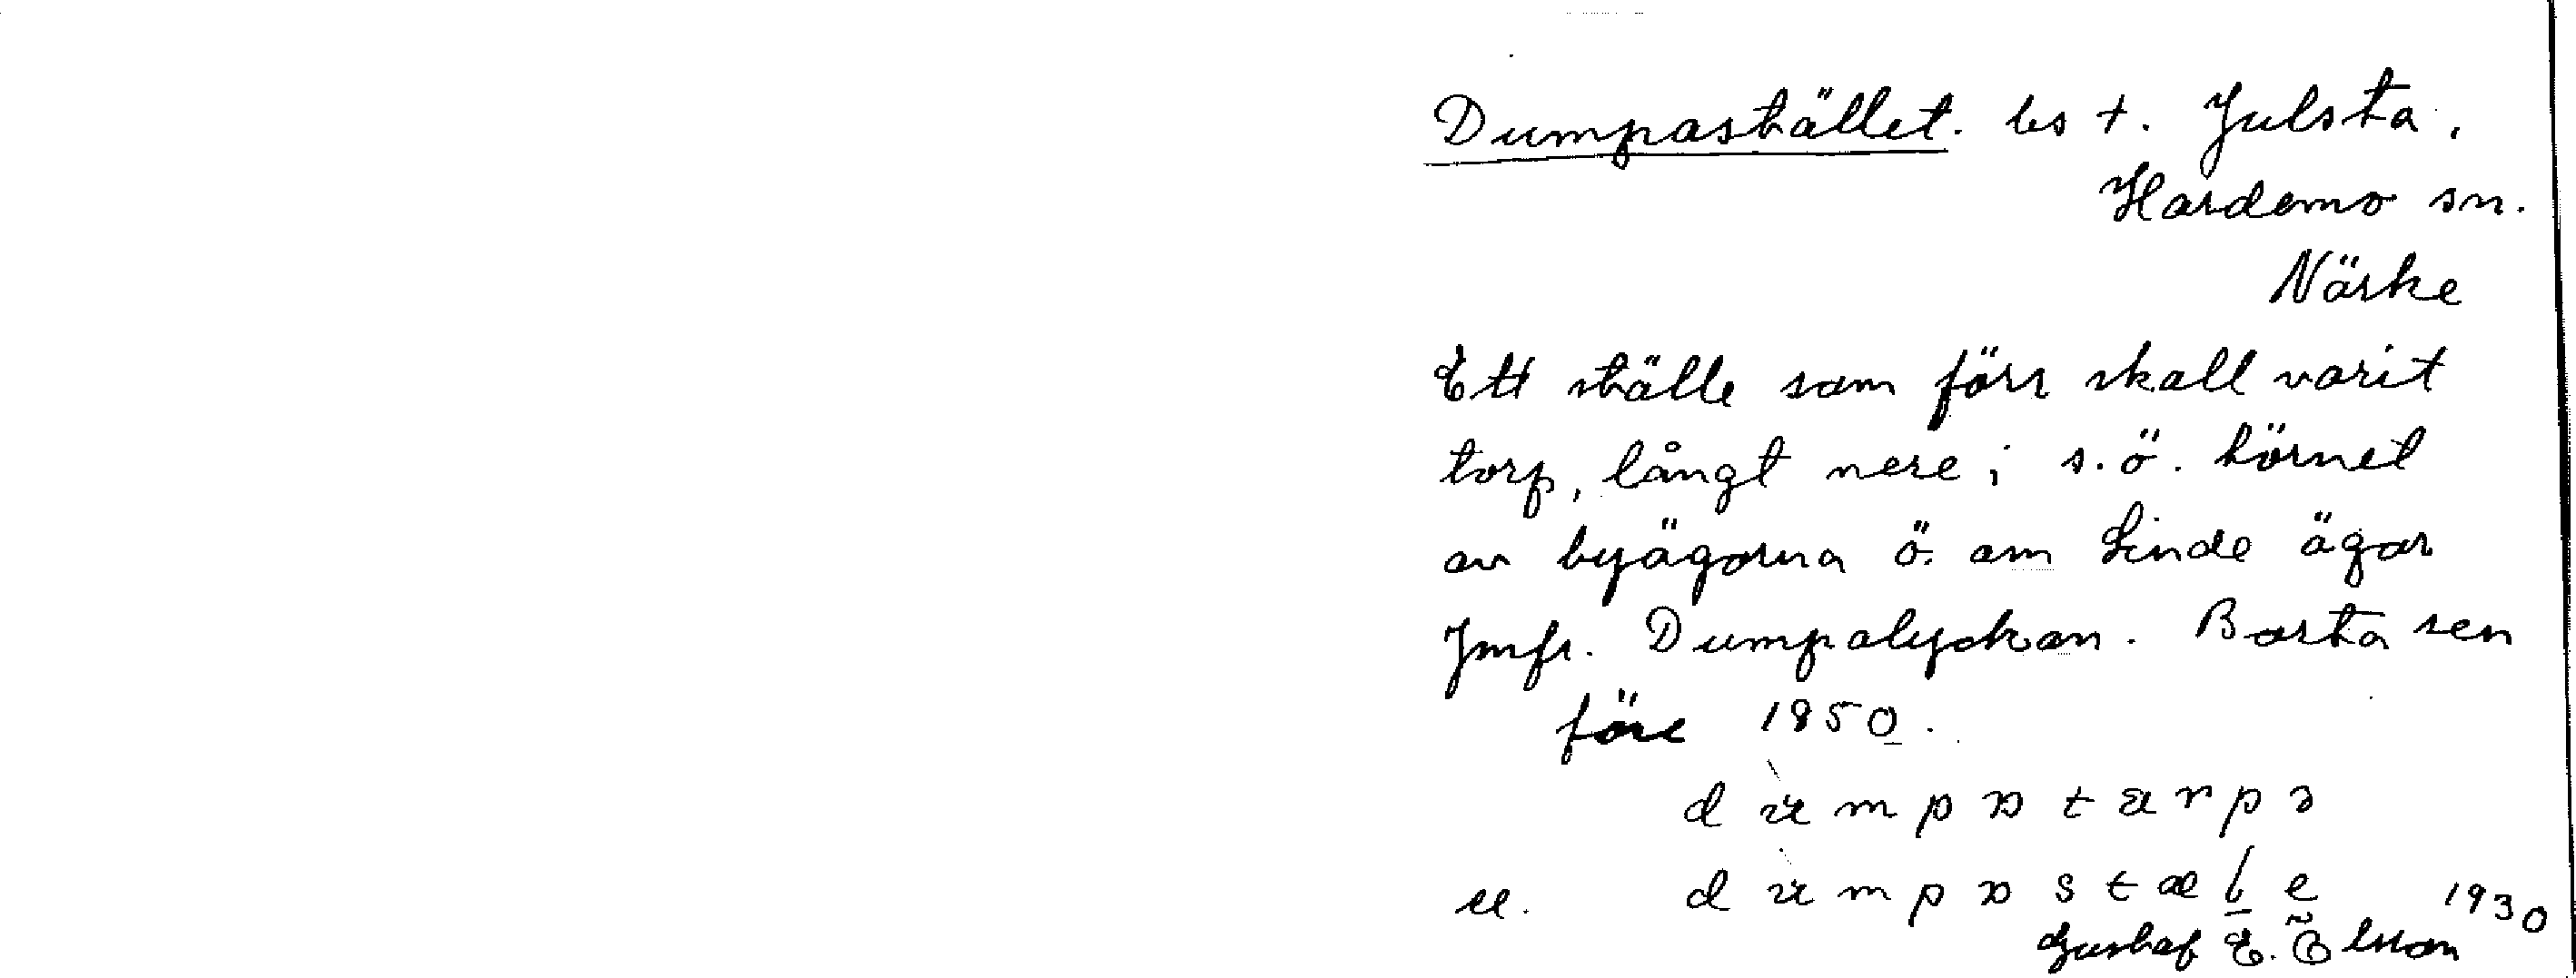 Dumpastället. bs t. Julsta.
Hardemo sn.
Närke
Ett ställe som förr skall varit
torp, långt nere i s.ö. hörnet
av byägorna ö. om Linde ägor
Jmfr. Dumpalyckan. Borta sen
före 1850.
1930
Gustaf E.